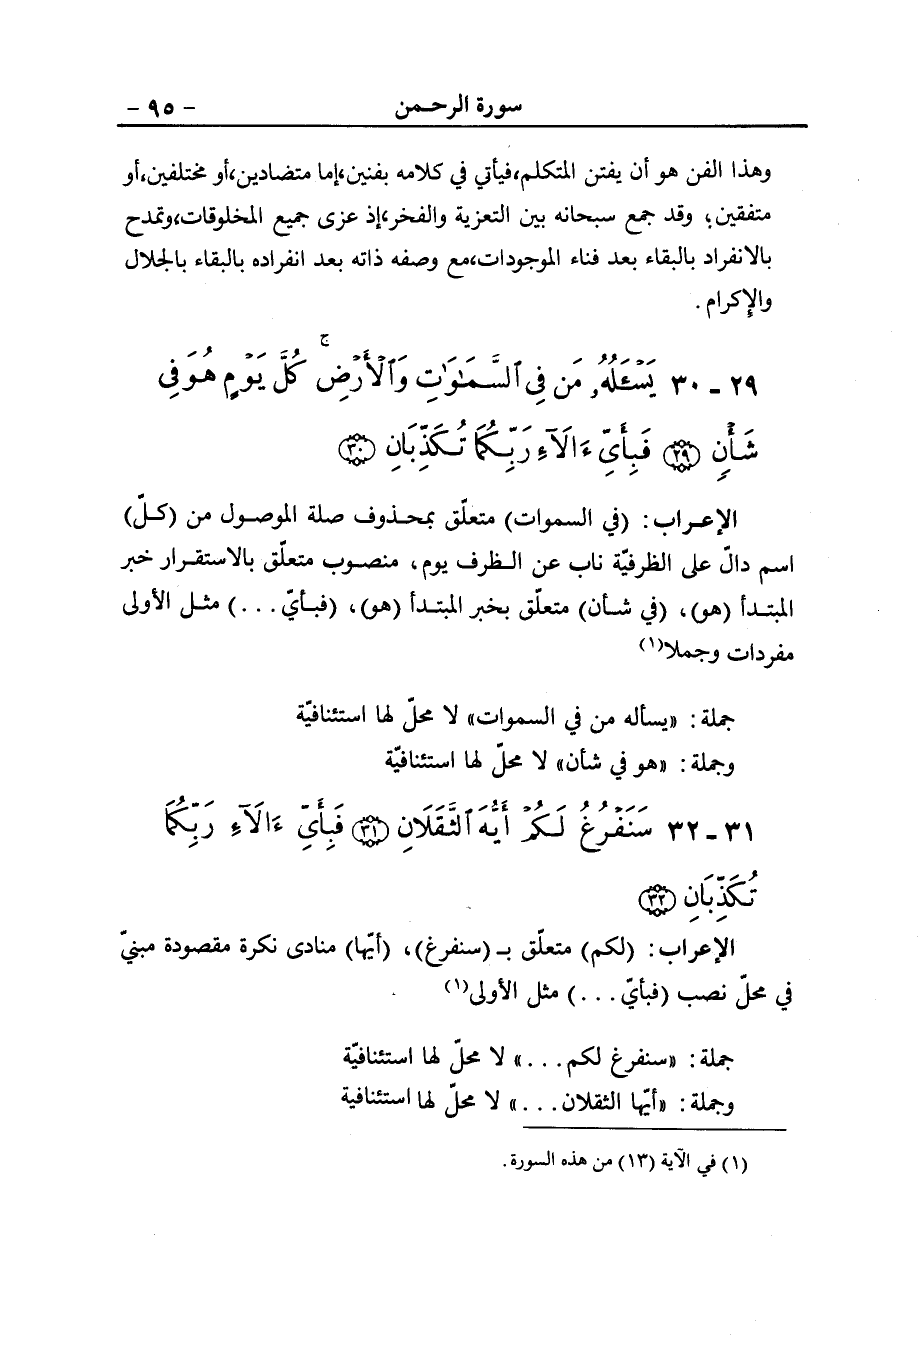 سورة الرحمن - ٩٥ -
وهذا الفن هو أن يفتن المتكلم،فيأتي في كلامه بفنين،إما متضادين،أو مختلفين،أو
متفقين؛ وقد جمع سبحانه بين التعزية والفخر،إذ عزى جميع المخلوقات،وتمدح
بالانفراد بالبقاء بعد فناء الموجودات،مع وصفه ذاته بعد انفراده بالبقاء بالجلال
والإكرام .
٢٩ - ٣٠ يَسْـَٔلُهُۥ مَن فِي ٱلسَّمَـٰوَٰتِ وَٱلْأَرْضِ ۚ كُلَّ يَوْمٍ هُوَ فِي
شَأْنٍ (٢٩) فَبِأَيِّ ءَالَآءِ رَبِّكُمَا تُكَذِّبَانِ (٣٠)
الإعراب: (في السموات) متعلّق بمحذوف صلة الموصول من (كلّ)
اسم دالّ على الظرفيّة ناب عن الظرف يوم، منصوب متعلّق بالاستقرار خبر
المبتدأ (هو)، (في شأن) متعلّق بخبر المبتدأ (هو)، (فبأيّ ...) مثل الأولى
مفردات وجملا(١)
جملة: «يسأله من في السموات» لا محلّ لها استئنافيّة
وجملة: «هو في شأن» لا محلّ لها استئنافيّة
٣١ - ٣٢ سَنَفْرُغُ لَكُمْ أَيُّهَ ٱلثَّقَلَانِ (٣١) فَبِأَيِّ ءَالَآءِ رَبِّكُمَا
تُكَذِّبَانِ (٣٢)
الإعراب: (لكم) متعلّق بـ (سنفرغ)، (أيّها) منادى نكرة مقصودة مبنيّ
في محلّ نصب (فبأيّ ...) مثل الأولى(١)
جملة: «سنفرغ لكم ...» لا محلّ لها استئنافيّة
وجملة: «أيّها الثقلان ...» لا محلّ لها استئنافية
(١) في الآية (١٣) من هذه السورة .